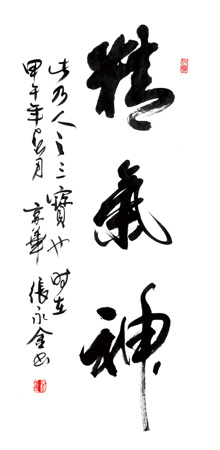 精氣神
此乃人之三寶也 时在
甲午年 月 京華 張永金书